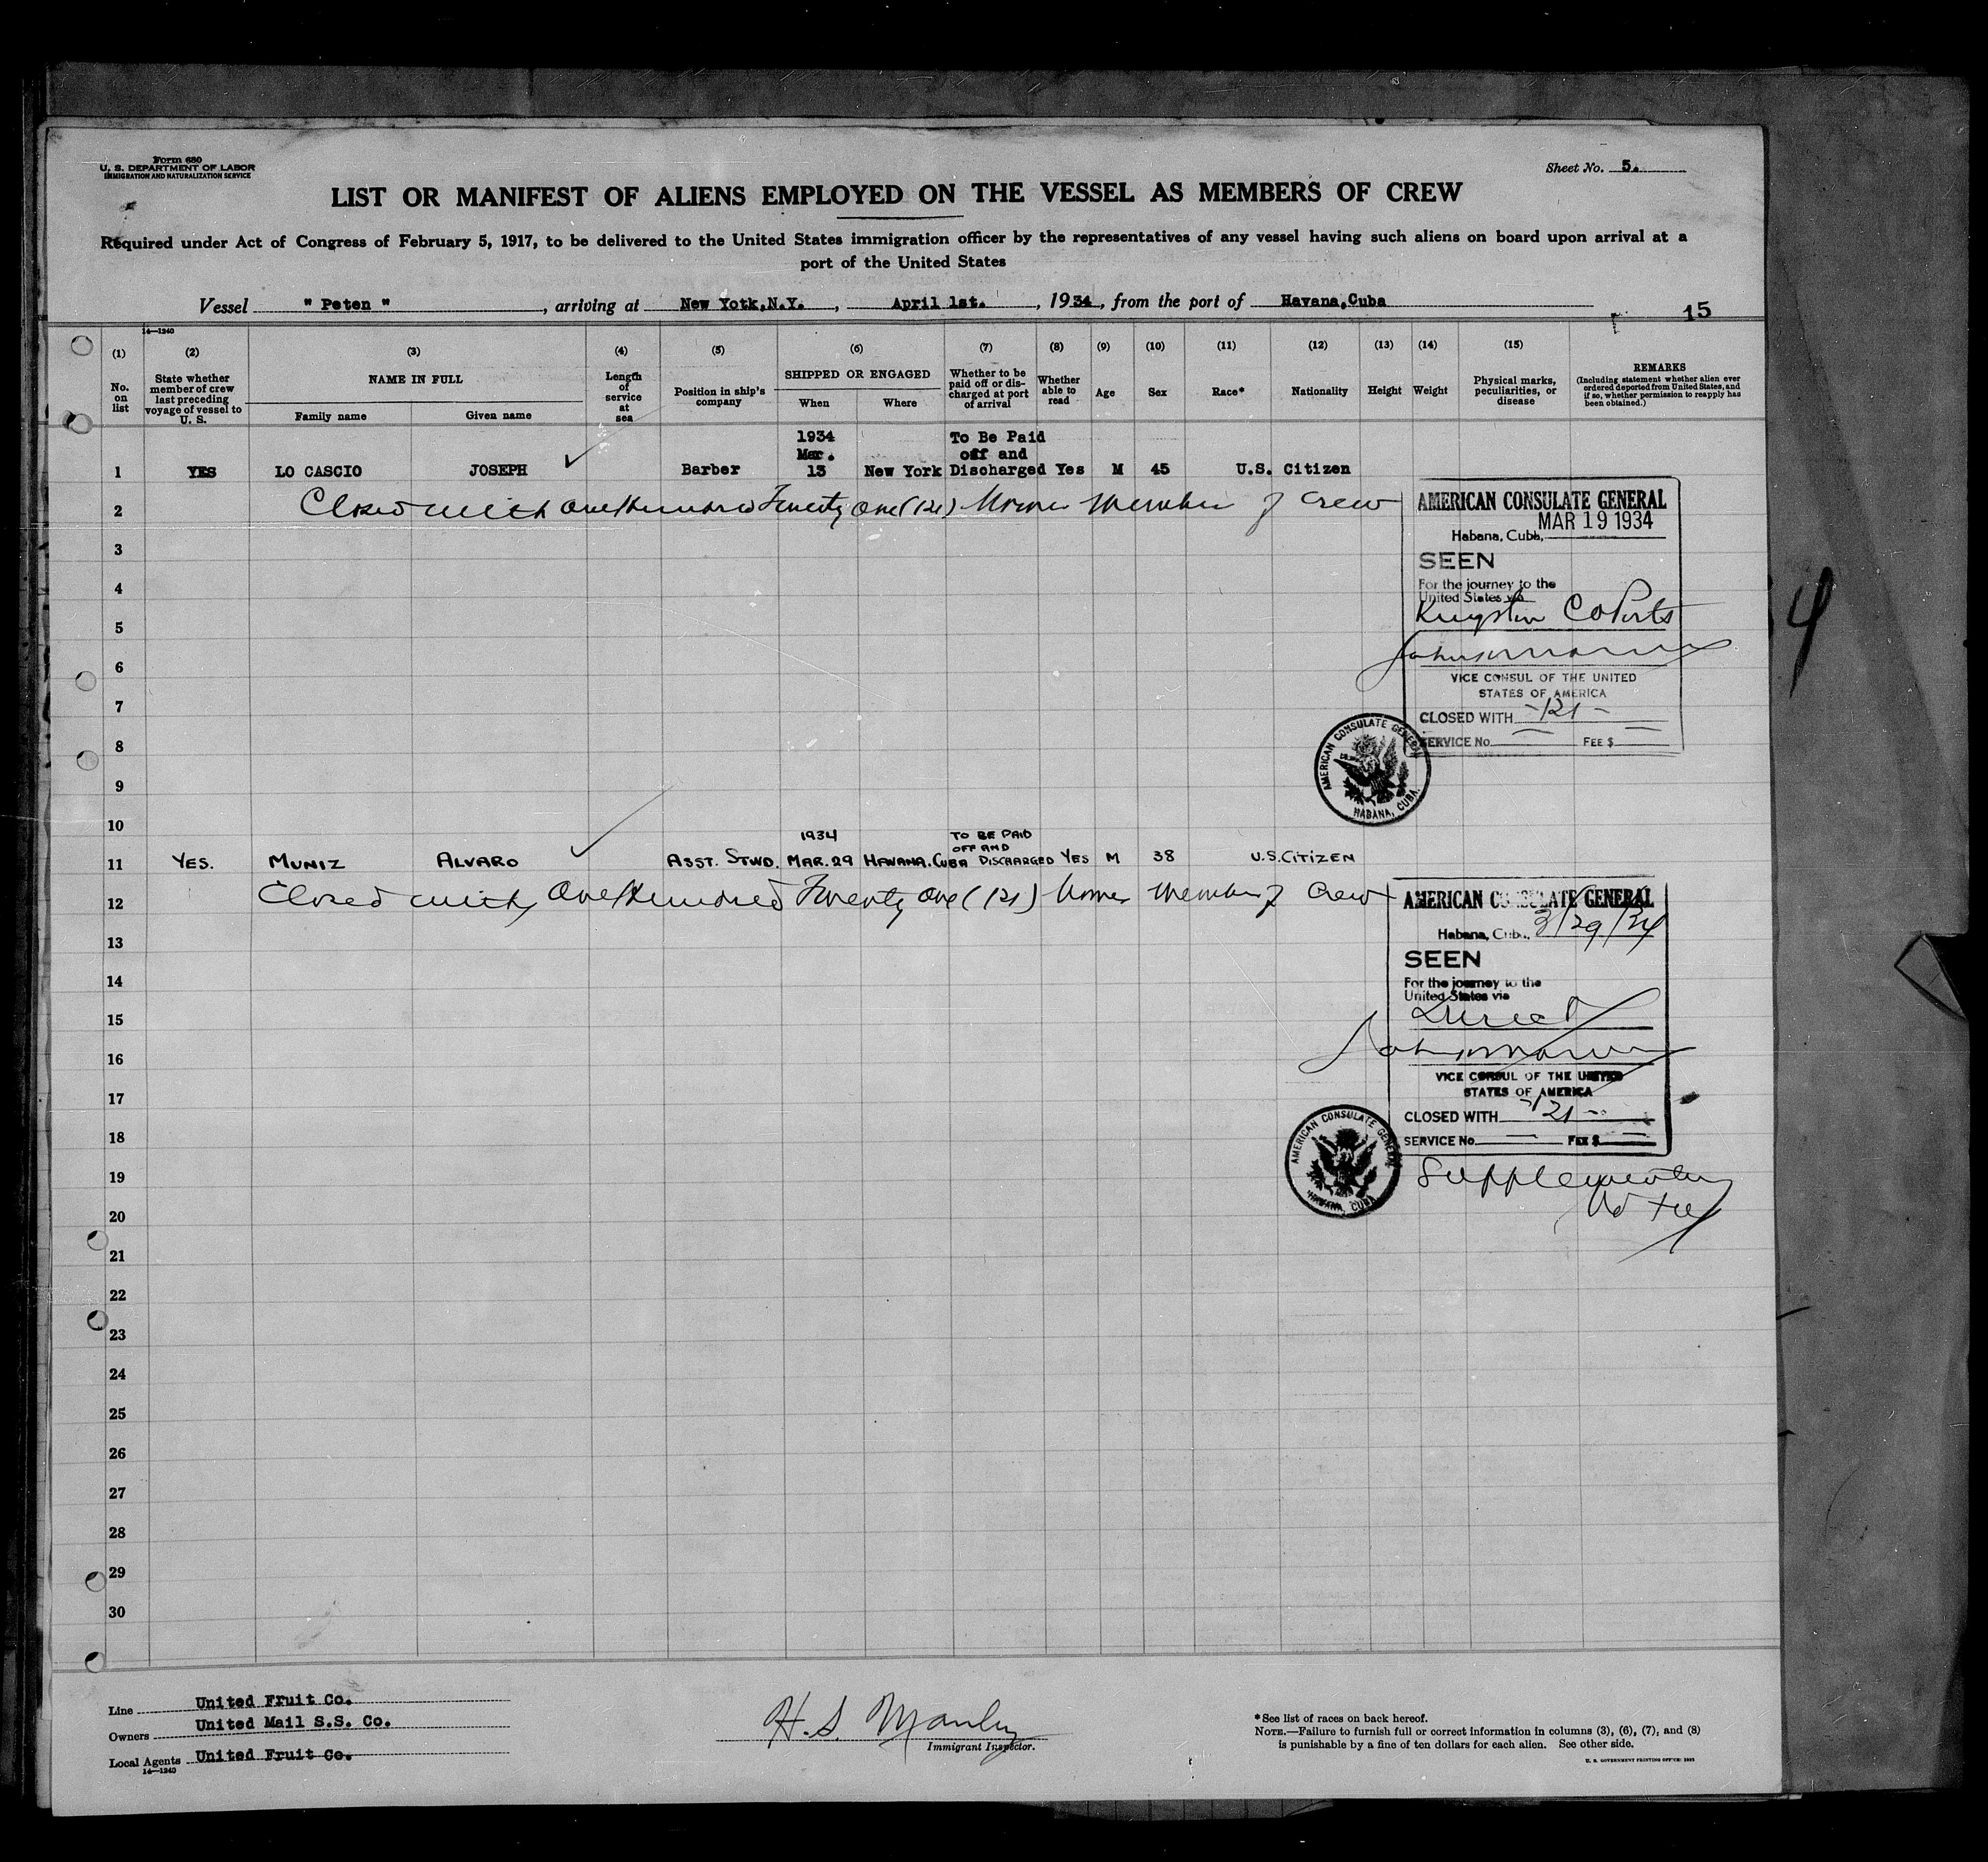 Form 680
U. S. DEPARTMENT OF LABOR
IMMIGRATION AND NATURALIZATION SERVICE
Sheet No. 5.
LIST OR MANIFEST OF ALIENS EMPLOYED ON THE VESSEL AS MEMBERS OF CREW
Required under Act of Congress of February 5, 1917, to be delivered to the United States immigration officer by the representatives of any vessel having such aliens on board upon arrival at a
port of the United States
Vessel " Peten " , arriving at New Yotk,N.Y. , April 1st. , 1934, from the port of Havana,Cuba
15
14—1240
(1) (2) (3) (4) (5) (6) (7) (8) (9) (10) (11) (12) (13) (14) (15)
No. on list
State whether member of crew last preceding voyage of vessel to U. S.
NAME IN FULL
Family name Given name
Length of service at sea
Position in ship's company
SHIPPED OR ENGAGED
When Where
Whether to be paid off or discharged at port of arrival
Whether able to read
Age
Sex
Race*
Nationality
Height
Weight
Physical marks, peculiarities, or disease
REMARKS
(Including statement whether alien ever ordered deported from United States, and if so, whether permission to reapply has been obtained.)
1934 To Be Paid
Mar. off and
1 YES LO CASCIO JOSEPH ✓ Barber 13 New York Discharged Yes M 45 U.S. Citizen
2 Closed with One Hundred Twenty One (121) Names Member of Crew
AMERICAN CONSULATE GENERAL
MAR 19 1934
Habana, Cuba,
3
SEEN
4
For the journey to the
United States via
5
Kingston CO Ports
6
VICE CONSUL OF THE UNITED
STATES OF AMERICA
7
CLOSED WITH -121-
8
SERVICE No. FEE $
AMERICAN CONSULATE GENERAL
HABANA, CUBA.
9
10
1934 TO BE PAID
OFF AND
11 YES. MUNIZ ALVARO ✓ ASST. STWD. MAR. 29 HAVANA. CUBA DISCHARGED YES M 38 U.S. CITIZEN
12 Closed with One Hundred Twenty One (121) Names Member of Crew
AMERICAN CONSULATE GENERAL
Habana, Cuba, 3/29/34
13
SEEN
14
For the journey to the
United States via
15
Direct
16
VICE CONSUL OF THE UNITED
STATES OF AMERICA
17
CLOSED WITH -121-
18
SERVICE No. FEE $
AMERICAN CONSULATE GENERAL
HABANA, CUBA
19
Supplementary
No Fee
20
21
22
23
24
25
26
27
28
29
30
Line United Fruit Co.
Owners United Mail S.S. Co.
Local Agents United Fruit Co.
14—1240
H. S. Manley
Immigrant Inspector.
*See list of races on back hereof.
NOTE.—Failure to furnish full or correct information in columns (3), (6), (7), and (8)
is punishable by a fine of ten dollars for each alien. See other side.